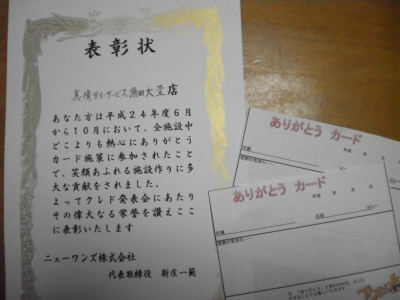 表彰状
真横デイサービス瀬田大萱店
あなた方は平成24年度6月
から10月において、全施設中
どこよりも熱心にありがとう
カード施策に参加されたこと
で、笑顔あふれる施設作りに多
大な貢献をされました。
よってクレド発表会にあたり
その偉大なる栄誉を讃えここ
に表彰いたします
ニューワンズ株式会社
代表取締役 新庄一範
ありがとう カード
ありがとう カード